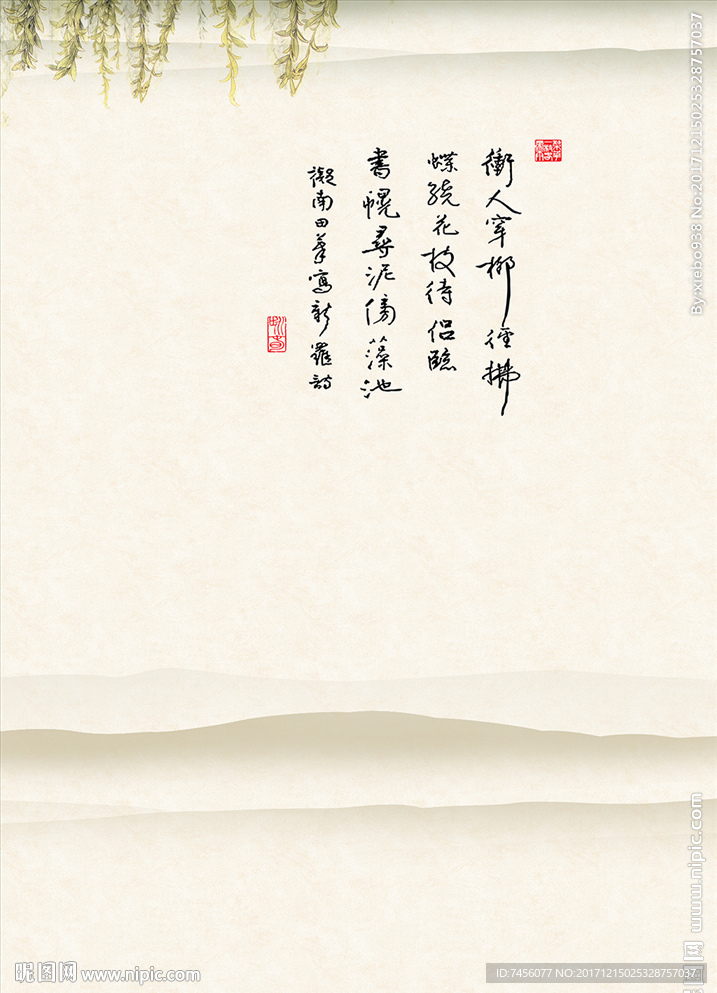 衝人穿柳徑拂
蝶繞花枝待侶臨
書幌尋泥傍藻池
擬南田筆寫新羅詩
By:xiebo938 No:20171215025328757037
www.nipic.com
昵图网 www.nipic.com
ID:7456077 NO:20171215025328757037